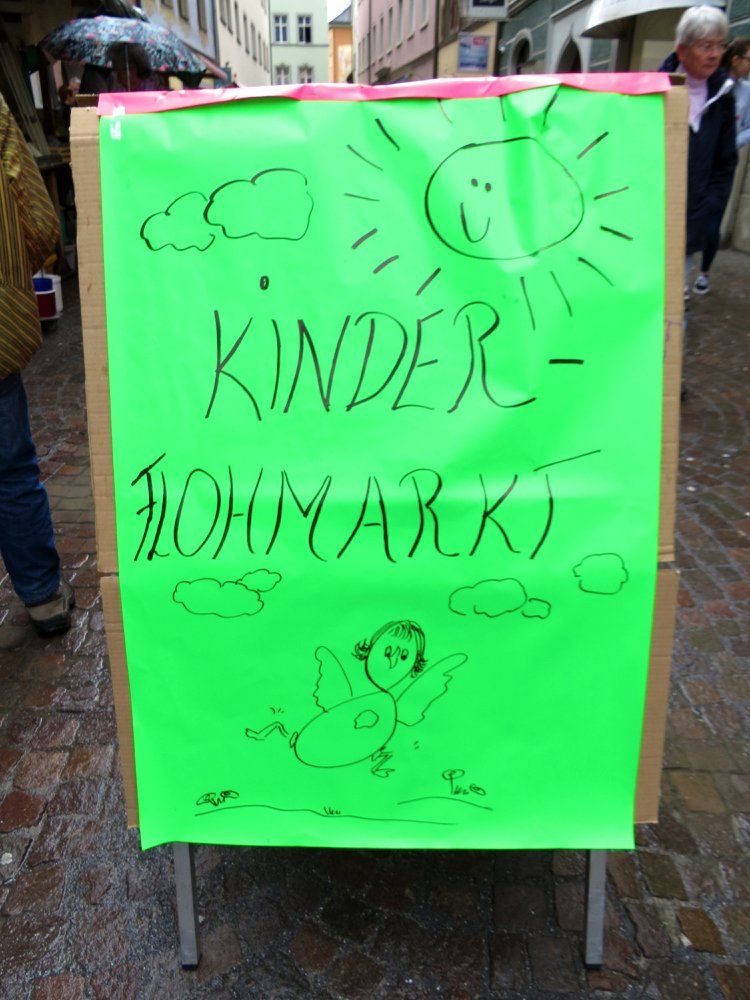 KINDER-
FLOHMARKT